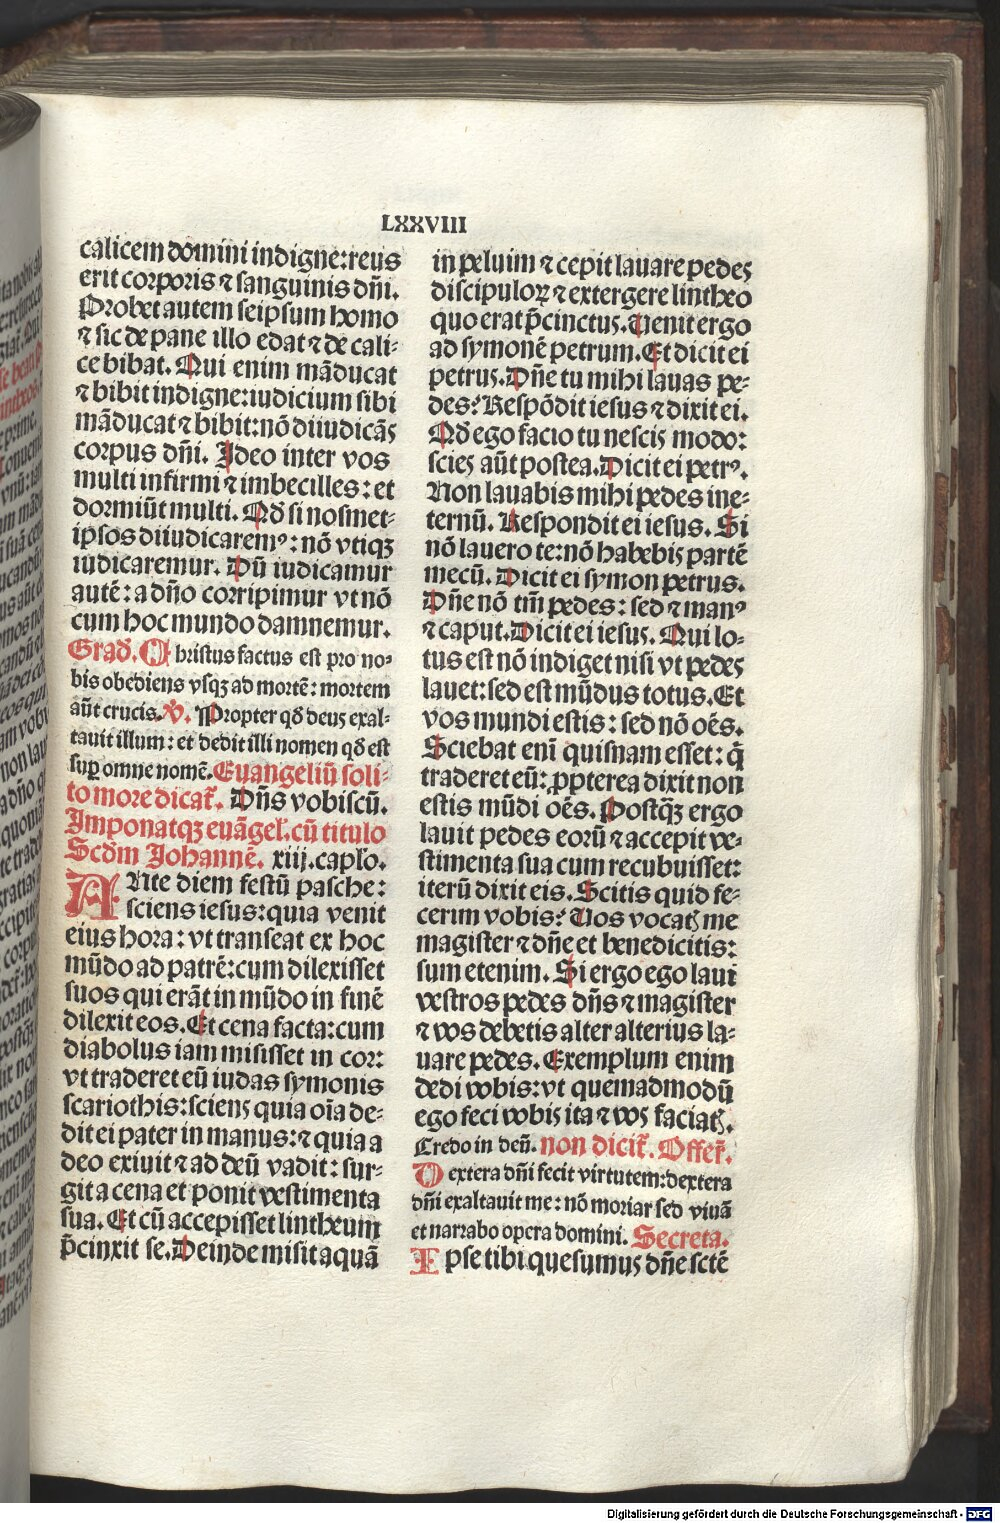 LXXVIII
calicem domini indigne: reus
erit corporis ⁊ sanguinis dñi.
Probet autem seipsum homo
⁊ sic de pane illo edat ⁊ de cali⸗
ce bibat. Qui enim mãducat
⁊ bibit indigne: iudicium sibi
mãducat ⁊ bibit: nõ diiudicãs
corpus dñi. Ideo inter vos
multi infirmi ⁊ imbecilles: et
dormiũt multi. Qđ si nosmet⸗
ipsos diiudicaremꝰ: nõ vtiqꝫ
iudicaremur. Dũ iudicamur
autẽ: a dño corripimur vt nõ
cum hoc mundo damnemur.
Građ. Christus factus est pro no⸗
bis obediens vsqꝫ ad mortẽ: mortem
aũt crucis. ℣. Propter qđ deus exal⸗
tauit illum: et dedit illi nomen qđ est
suꝑ omne nomẽ. Euangeliũ soli⸗
to more dicat̃. Dñs vobiscũ.
Imponatqꝫ euãgel̃. cũ titulo
Scđm Johannẽ. xiij. caplo.
ANte diem festũ pasche:
sciens iesus: quia venit
eius hora: vt transeat ex hoc
mũdo ad patrẽ: cum dilexisset
suos qui erãt in mũdo in finẽ
dilexit eos. Et cena facta: cum
diabolus iam misisset in cor:
vt traderet eũ iudas symonis
scariothis: sciens quia oĩa de⸗
dit ei pater in manus: ⁊ quia a
deo exiuit ⁊ ad deũ vadit: sur⸗
git a cena et ponit vestimenta
sua. Et cũ accepisset lintheum
p̃cinxit se. Deinde misit aquã
in peluim ⁊ cepit lauare pedes
discipuloꝝ ⁊ extergere lintheo
quo erat p̃cinctus. Uenit ergo
ad symonẽ petrum. Et dicit ei
petrus. Dñe tu mihi lauas pe⸗
des? Respõdit iesus ⁊ dixit ei.
Qđ ego facio tu nescis modo:
scies aũt postea. Dicit ei petrꝰ.
Non lauabis mihi pedes ine⸗
ternũ. Respondit ei iesus. Si
nõ lauero te: nõ habebis partẽ
mecũ. Dicit ei symon petrus.
Dñe nõ tm̃ pedes: sed ⁊ manꝰ
⁊ caput. Dicit ei iesus. Qui lo⸗
tus est nõ indiget nisi vt pedes
lauet: sed est mũdus totus. Et
vos mundi estis: sed nõ oẽs.
Sciebat eni quisnam esset: q̃
traderet eũ: ꝓpterea dixit non
estis mũdi oẽs. Postqꝫ ergo
lauit pedes eorũ ⁊ accepit ve⸗
stimenta sua cum recubuisset:
iterũ dixit eis. Scitis quid fe⸗
cerim vobis? Uos vocatꝭ me
magister ⁊ dñe et benedicitis:
sum etenim. Si ergo ego laui
vestros pedes dñs ⁊ magister
⁊ vos debetis alter alterius la⸗
uare pedes. Exemplum enim
dedi vobis: vt quemadmodũ
ego feci vobis ita ⁊ vos faciatꝭ.
Credo in deũ. non dicit̃. Offer̃.
Dextera dñi fecit virtutem: dextera
dñi exaltauit me: nõ moriar sed viuã
et narrabo opera domini. Secreta.
Ipse tibi quesumus dñe sctẽ
Digitalisierung gefördert durch die Deutsche Forschungsgemeinschaft - DFG